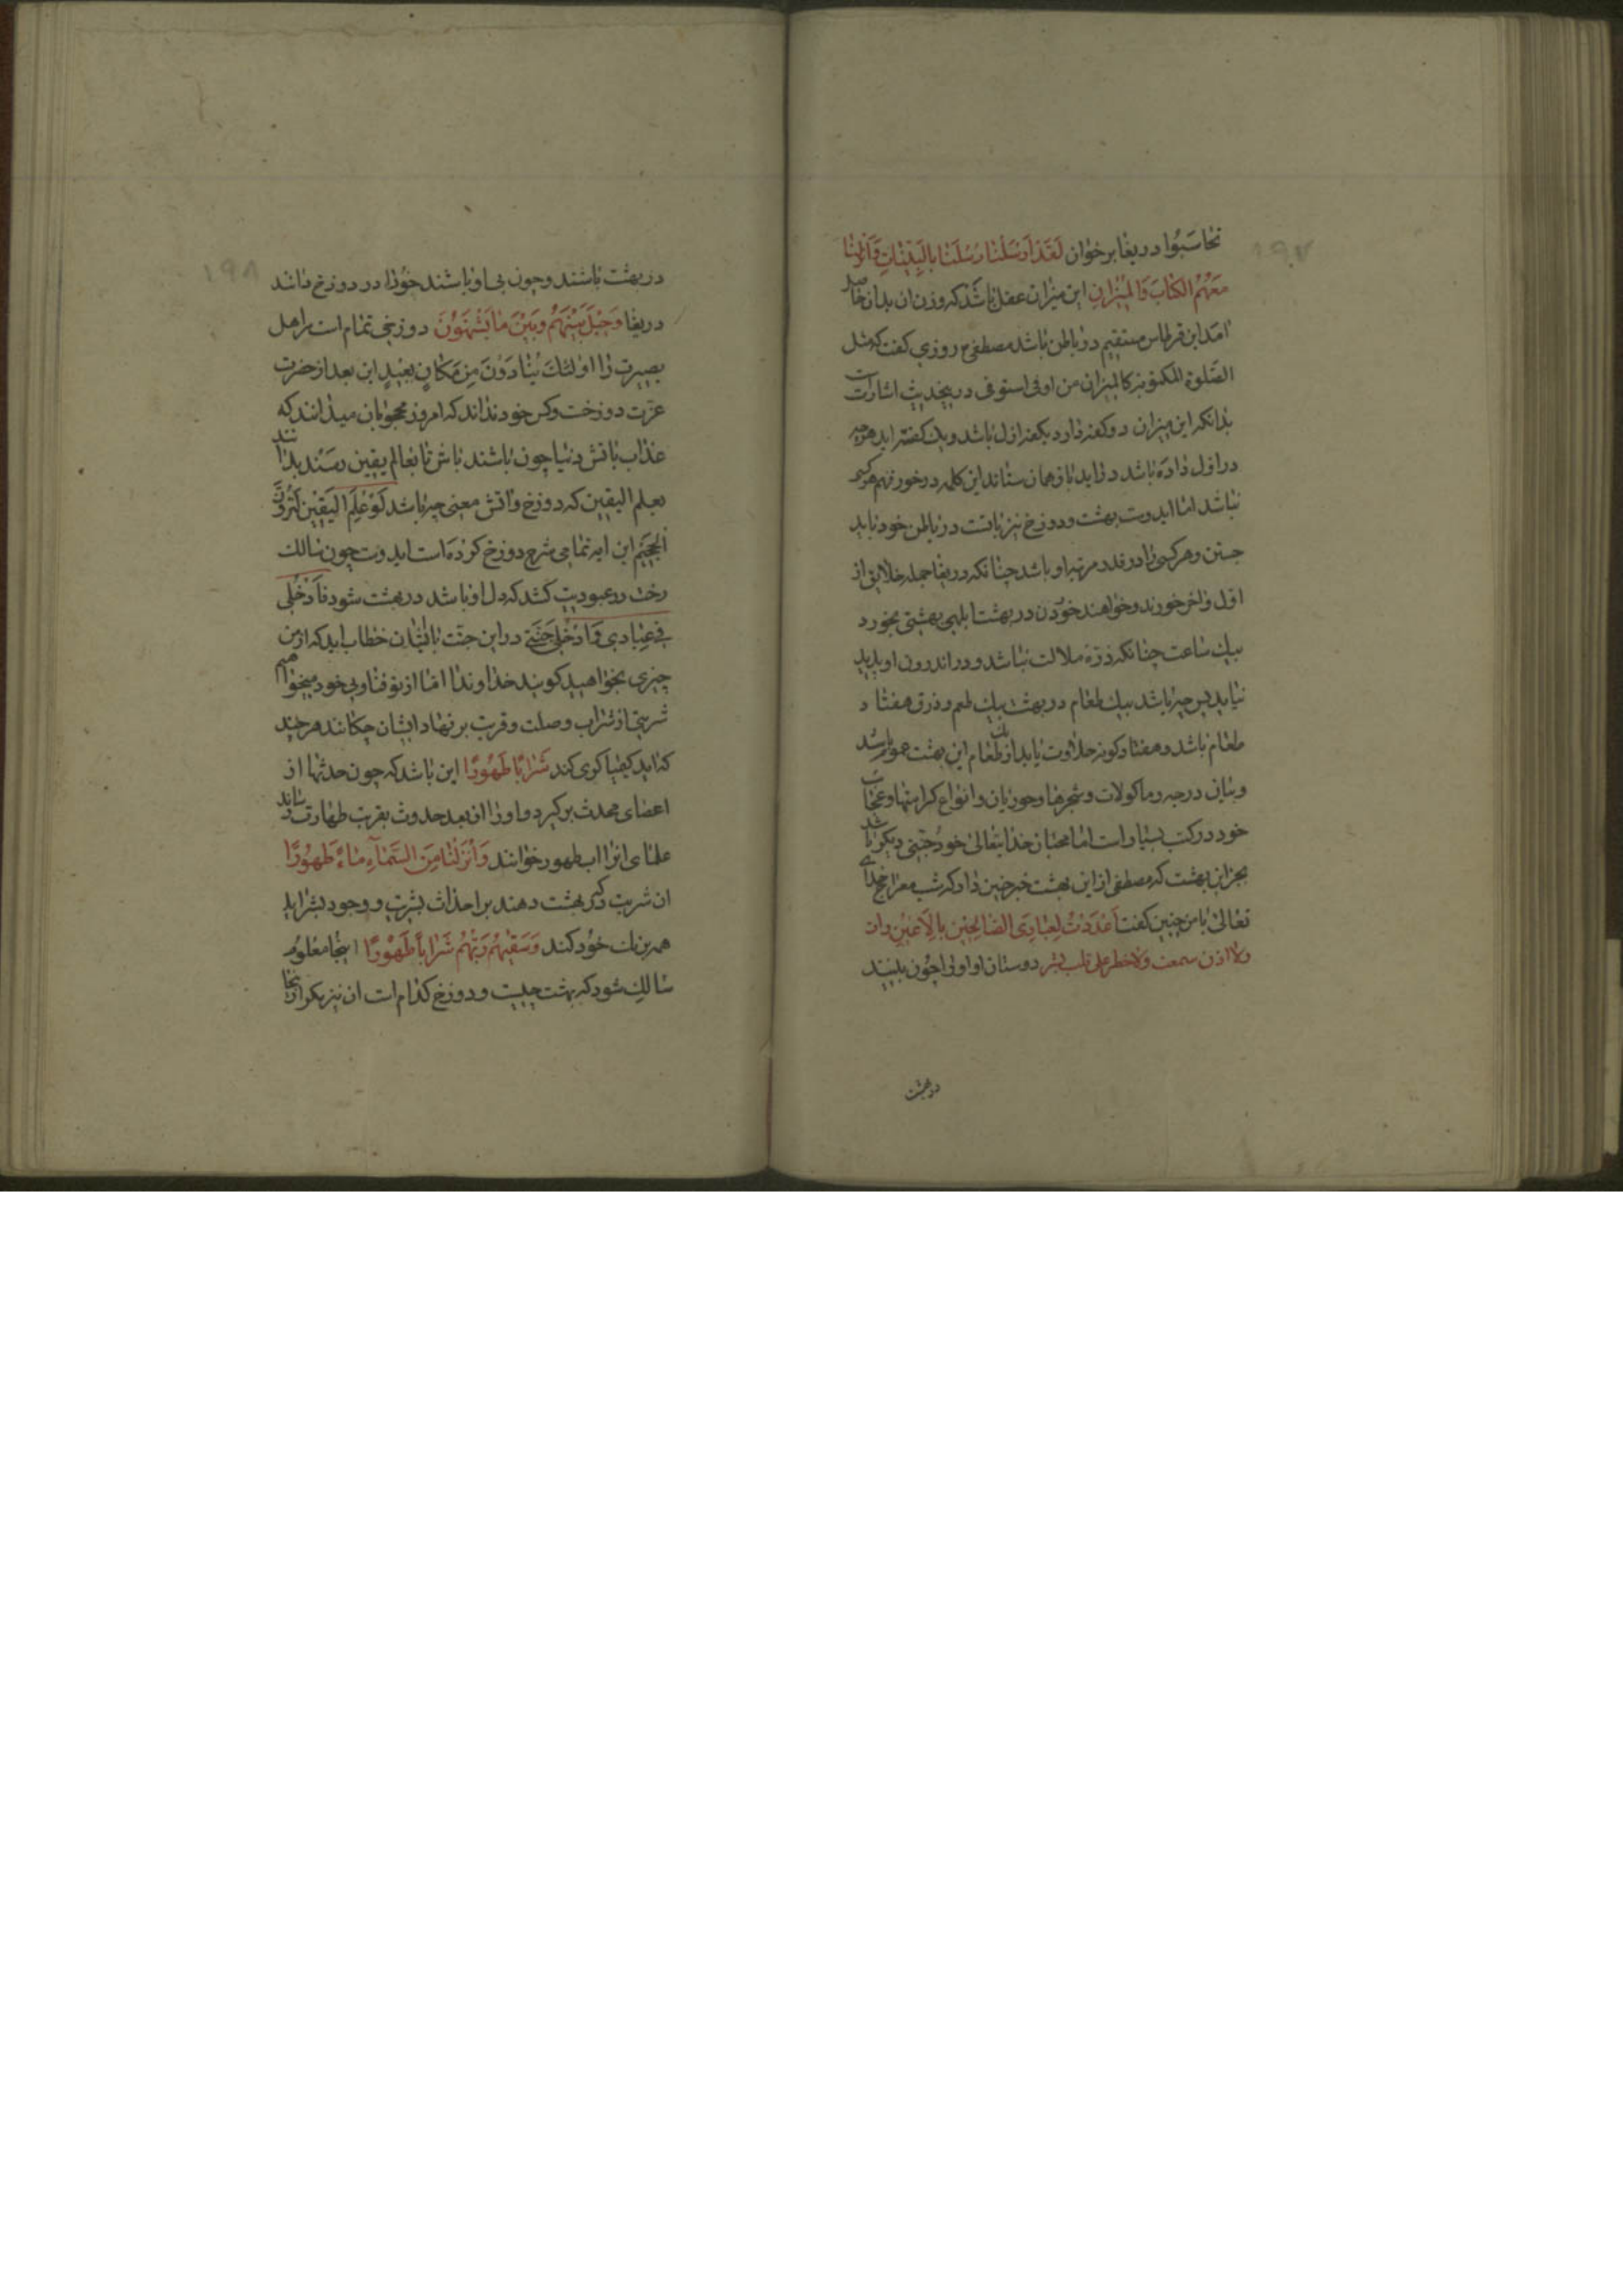 تحاسبوا دریغا برخوان لَقَد اَرسَلنا رُسُلَنا بِالبَیِّناتِ وَاَنزَلنا
مَعَهُمُ الکِتابَ وَالمیزانِ این میزان عقل باشد که وزن ان بدان حاصل
امد این قرطاس مستقیم در باطن باشد مصطفی روزی کفت که مثل
الصّلوة المکتوبة کالمیزان من اوفی استوفی در اینحدیث اشارات
بدانکه این میزان دو کفه دارد یکفه ازل باشد و یک کفه ابد هرچه
در ازل داده باشد در ابد باز همان ستاند این کلمه در خور فهم هرکسی
نباشد اما ایدوست بهشت و دوزخ نیز با تست در باطن خود باید
جستن و هرکسی را در قدر مرتبه او باشد چنانکه دریغا جمله خلایق از
اوّل و اخر خورند و خواهند خوردن در بهشت ابلهی بهشتی بخورد
بیک ساعت چنانکه ذرّهٔ ملالت نباشد و در اندرون او پدید
نیاید پس چه باشد بیک طعام در بهشت بیک طعم و ذوق هفتاد
طعام باشد و هفتاد کونه حلاوت یابد از یک طعام این بهشت عموم باشد
و بیان درجه و ماکولات و شجرها و حوریان و انواع کرامتها و عجایب
خود در کتب بسیار است اما محبان خدایتعالی خود جنتی دیکر باشد
بجز این بهشت که مصطفی از این بهشت خبر چنین داد که شب معراج خدای
تعالی با من چنین کفت اَعدَدتُ لِعِبادِیَ الصّالِحین ما لا عَین رات
ولا اذن سمعت ولا خطر علی قلب بشر دوستان او او را چون ببینند
در بهشت
۱۹۸
در بهشت باشند و چون بی او باشند خود را در دوزخ دانند
دریغا وَحیلَ بَینَهُم وَبَینَ ما یَشتَهون دوزخی تمام است مر اهل
بصیرت را اولئک یُنادَونَ مِن مَکانٍ بَعیدٍ این بعد از حضرت
عزت دوزخست و کس خود نداند که امروز محجوبان میدانند که
عذاب باتش دنیا چون باشند باش تا بعالم یقین رسند بدانند
بعلم الیقین که دوزخ و اتش معنی چه باشد لَو عِلمَ الیَقین لَتَرَوُنَّ
الجَحیَم این ایه تمامی شرح دوزخ کرده است ایدوست چون سالک
رخت در عبودیت کشد که دل او باشد در بهشت شود فَادخُلی
فی عِبادی وَادخُلی جَنَّتی در این جنّت با ایشان خطاب اید که از من
چیزی بخواهید کویند خداوندا ما از تو فنا و بی خود میخواهیم
شربتی از شراب وصلت و قربت بر نهاد ایشان چکانند هر چند
که اید کیمیا کری کند شَراباً طَهُوراً این باشد که چون حدثها از
اعضای محدث برکیرد و او را از بعد حدوث بقرب طهارت رساند
علمای انرا اب طهور خوانند وَاَنزَلنا مِنَ السَّماءِ ماءً طَهُوراً
ان شربت که بهشت دهند بر احداث بشریت و وجود بشر اید
همرنک خود کند وَسَقیهُم رَبُّهُم شَراباً طَهُوراً اینجا معلوم
سالک شود که بهشت چیست و دوزخ کدام است ان نیز بکو از انجا